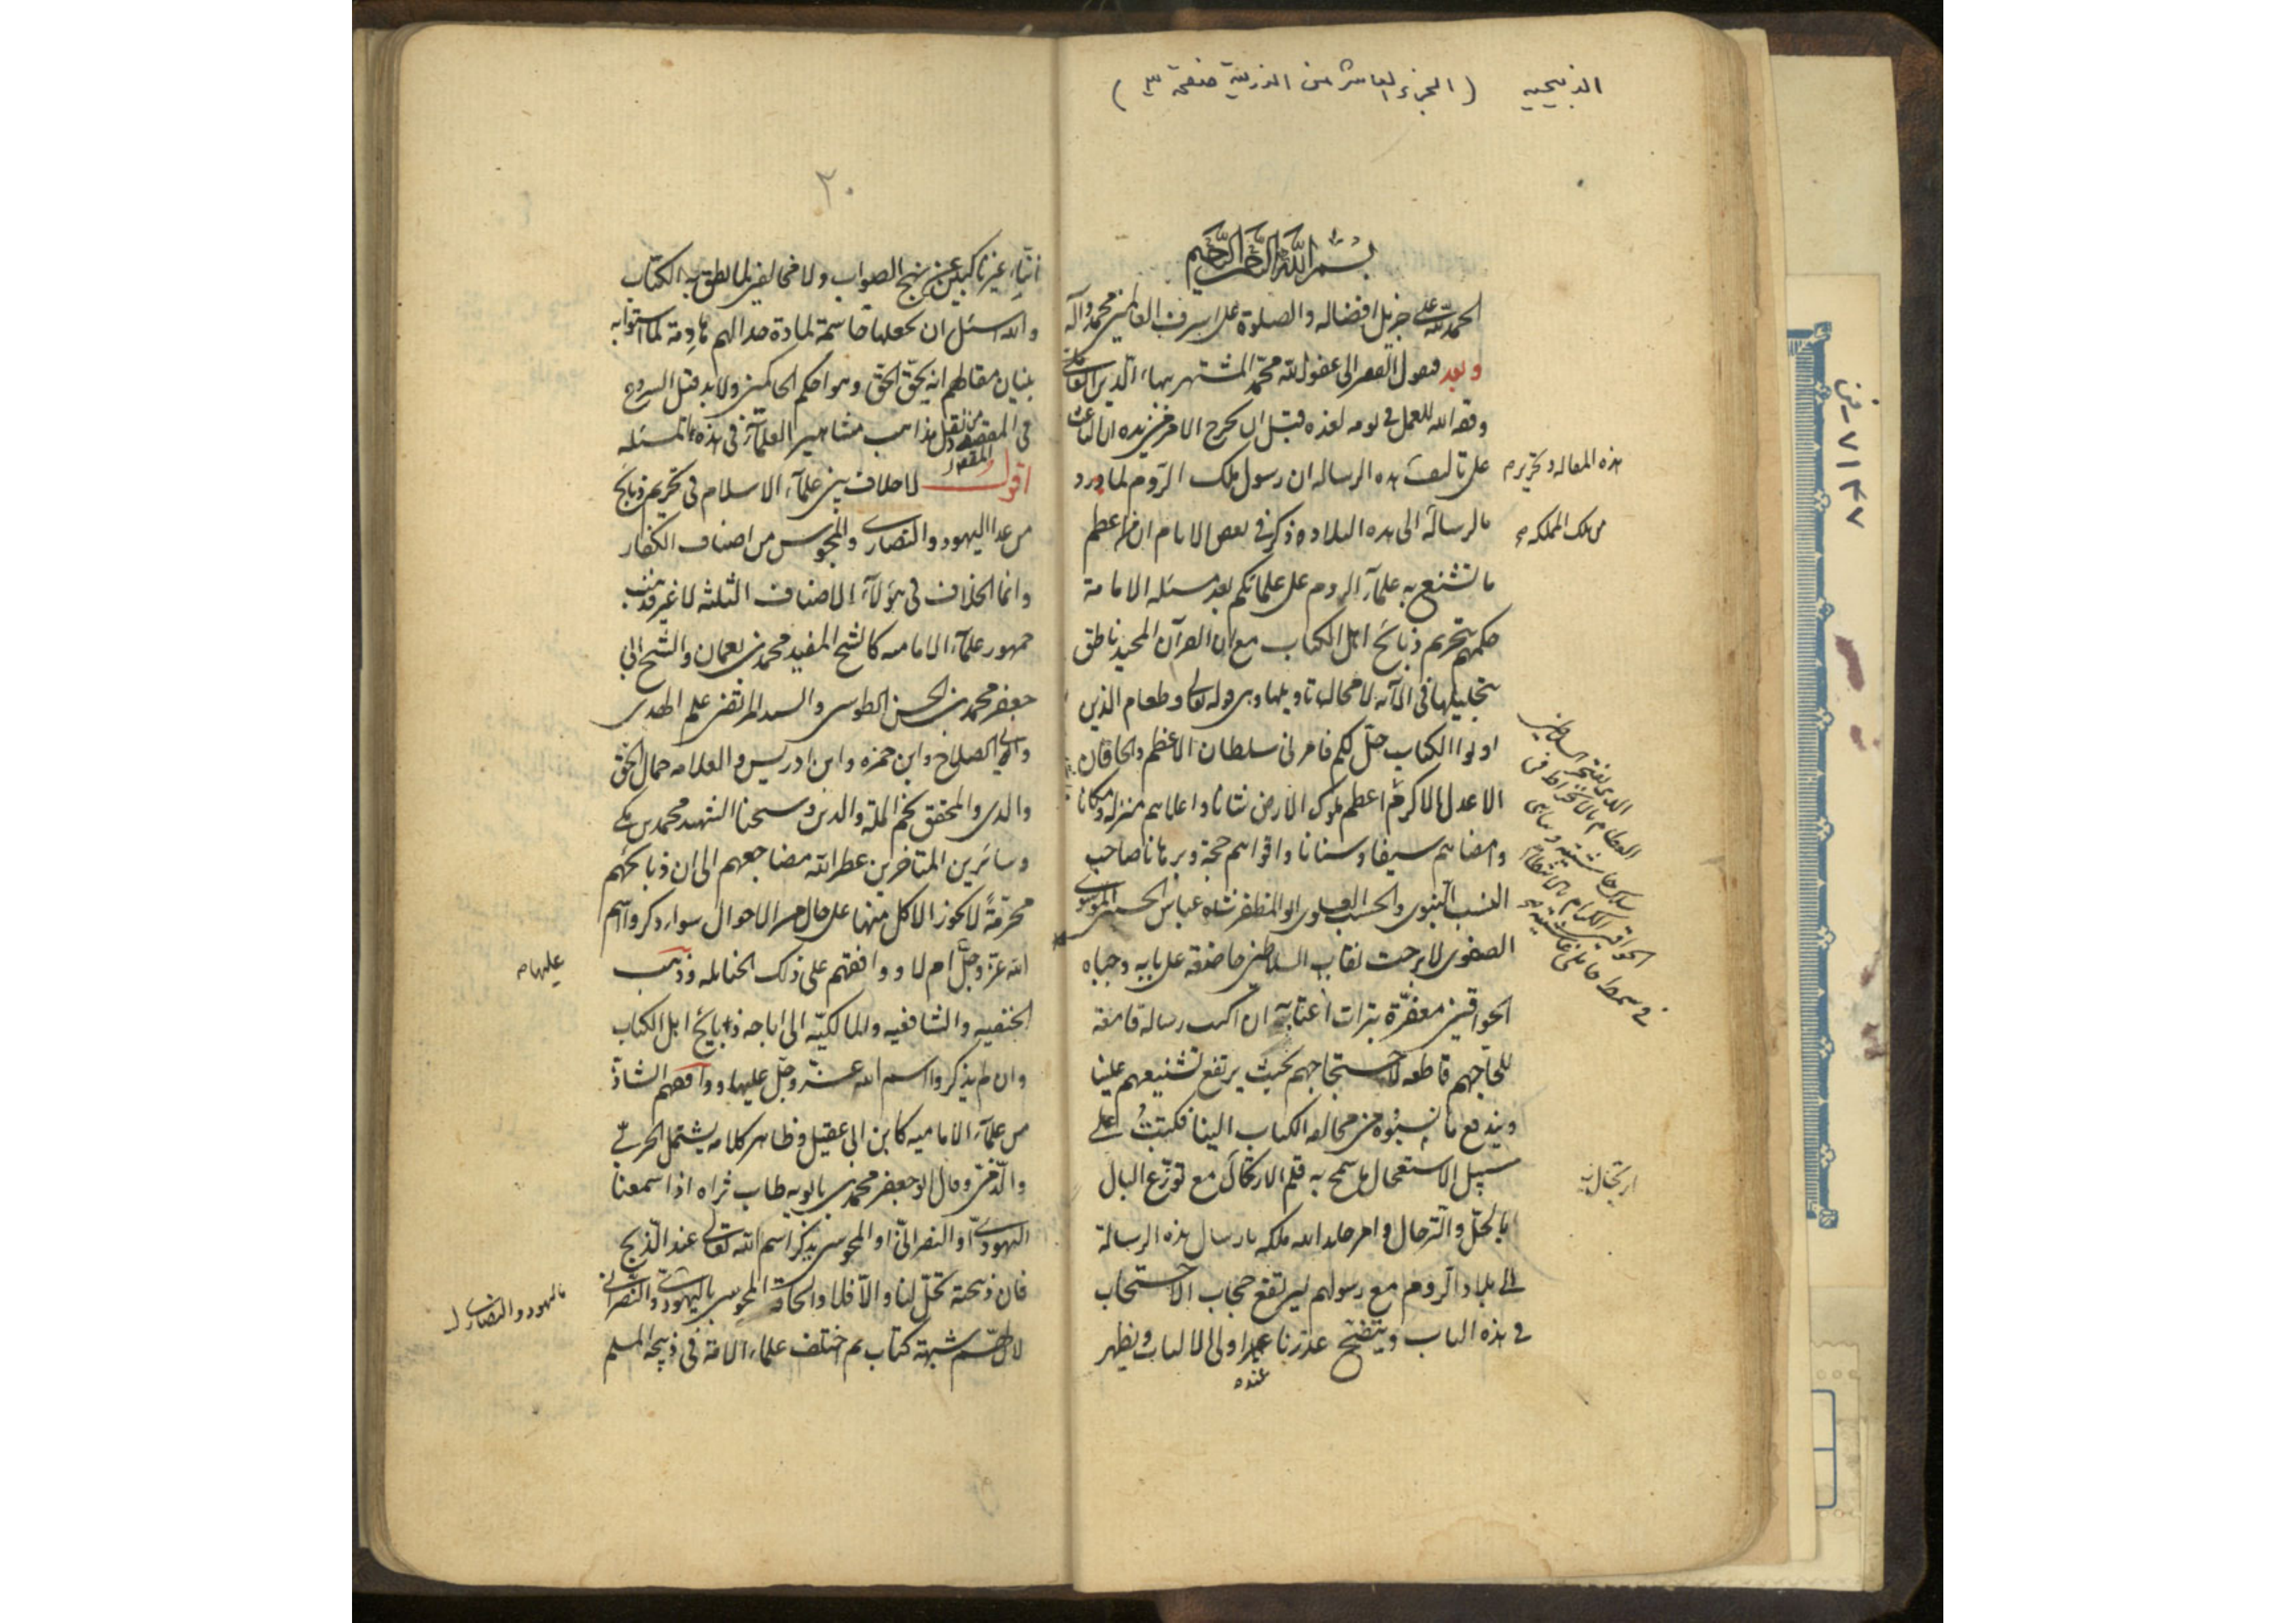 الذبيحيه (الجزء العاشر من الذريعة صفحة ٣)
بسم الله الرحمن الرحيم
الحمد لله على جزيل افضاله والصلوة على اشرف العالمين محمد وآله
وبعد فيقول الفقير الى عفو الله محمد المشتهر ببهاء الدين العاملي
وفقه الله للعمل في يومه لغده قبل ان يخرج الامر من يده ان الباعث
على تاليف هذه الرساله ان رسول ملك الروم لما ورد
بالرسالة الى هذه البلاد وذكر في بعض الايام ان اعظم
ما تشنع به علماء الروم على علمائكم بعد مسئله الامامة
حكمهم بتحريم ذبائح اهل الكتاب مع ان القرآن المجيد ناطق
بتحليلها في الآيه لا مجال لتاويلها وهي قوله تعالى وطعام الذين
اوتوا الكتاب حل لكم فامرني سلطان الاعظم والخاقان
الاعدل الاكرم اعظم ملوك الارض شانا واعلاهم منزلة ومكانا
وامضاهم سيفا وسنانا واقواهم حجة وبرهانا صاحب
النسب النبوى والحسب العلوى ابو المظفر شاه عباس الحسيني الموسوي
الصفوى لا برحت رقاب السلاطين خاضعة على بابه وجباه
الخواقين معفرة بتراب اعتابه ان اكتب رسالة قامعة
للجاجهم قاطعه لاحتجاجهم بحيث يرتفع تشنيعهم علينا
ويندفع ما نسبوه من مخالفه الكتاب الينا فكتبت على
سبيل الاستعجال ما سمح به قلم الارتجال مع توزع البال
بالحل والترحال وامر خلد الله ملكه بارسال هذه الرسالة
الى بلاد الروم مع رسولهم ليرتفع حجاب الاحتجاب
في هذه الباب ويتضح عذرنا عند اولى الالباب ويظهر
عنده
هذه المقاله وتحريرم
من تلك المملكه
ارتجال
٢٠
اننا غير ناكبين عن نهج الصواب ولا مخالفين لما نطق به الكتاب
والله اسئل ان يجعلها حاسمة لمادة جدالهم هادمة لما استوا به
بنيان مقاطهم انه يحق الحق وهو احكم الحاكمين ولا بد قبل الشروع
في المقصود من نقل مذاهب مشاهير العلماء في هذه المسئله
اقول لا خلاف بين علماء الاسلام في تحريم ذبائح
من عدا اليهود والنصارى والمجوس من اصناف الكفار
وانما الخلاف في هؤلاء الاصناف الثلثه لا غير فذهب
جمهور علماء الاماميه كالشيخ المفيد محمد بن نعمان والشيخ ابي
جعفر محمد بن الحسن الطوسي والسيد المرتضى علم الهدى
وابي الصلاح وابن حمزه وابن ادريس والعلامه جمال الحق
والدين والمحقق نجم الملة والدين وشيخنا الشهيد محمد بن مكي
وسائرين المتاخرين عطر الله مضاجعهم الى ان ذبائحهم
محرمة لا يجوز الاكل منها على حال من الاحوال سواء ذكروا اسم
الله عز وجل ام لا ووافقهم على ذلك الحنابله وذهب
الحنفيه والشافعيه والمالكيه الى اباحه ذبائح اهل الكتاب
وان لم يذكروا اسم الله عز وجل عليها ووافقهم الشاذ
من علماء الاماميه كابن ابي عقيل وظاهر كلامه يشتمل الحربي
والذمي وقال ابو جعفر محمد بن بابويه طاب ثراه اذا سمعنا
اليهودى او النصراني او المجوسي يذكر اسم الله تعالى عند الذبح
فان ذبيحته تحل لنا والا فلا والحاقه المجوسي باليهودى والنصراني
لان لهم شبهة كتاب ثم اختلف علماء الامة في ذبيحه المسلم
عليها
باليهود والنصارى
٧١٤٧